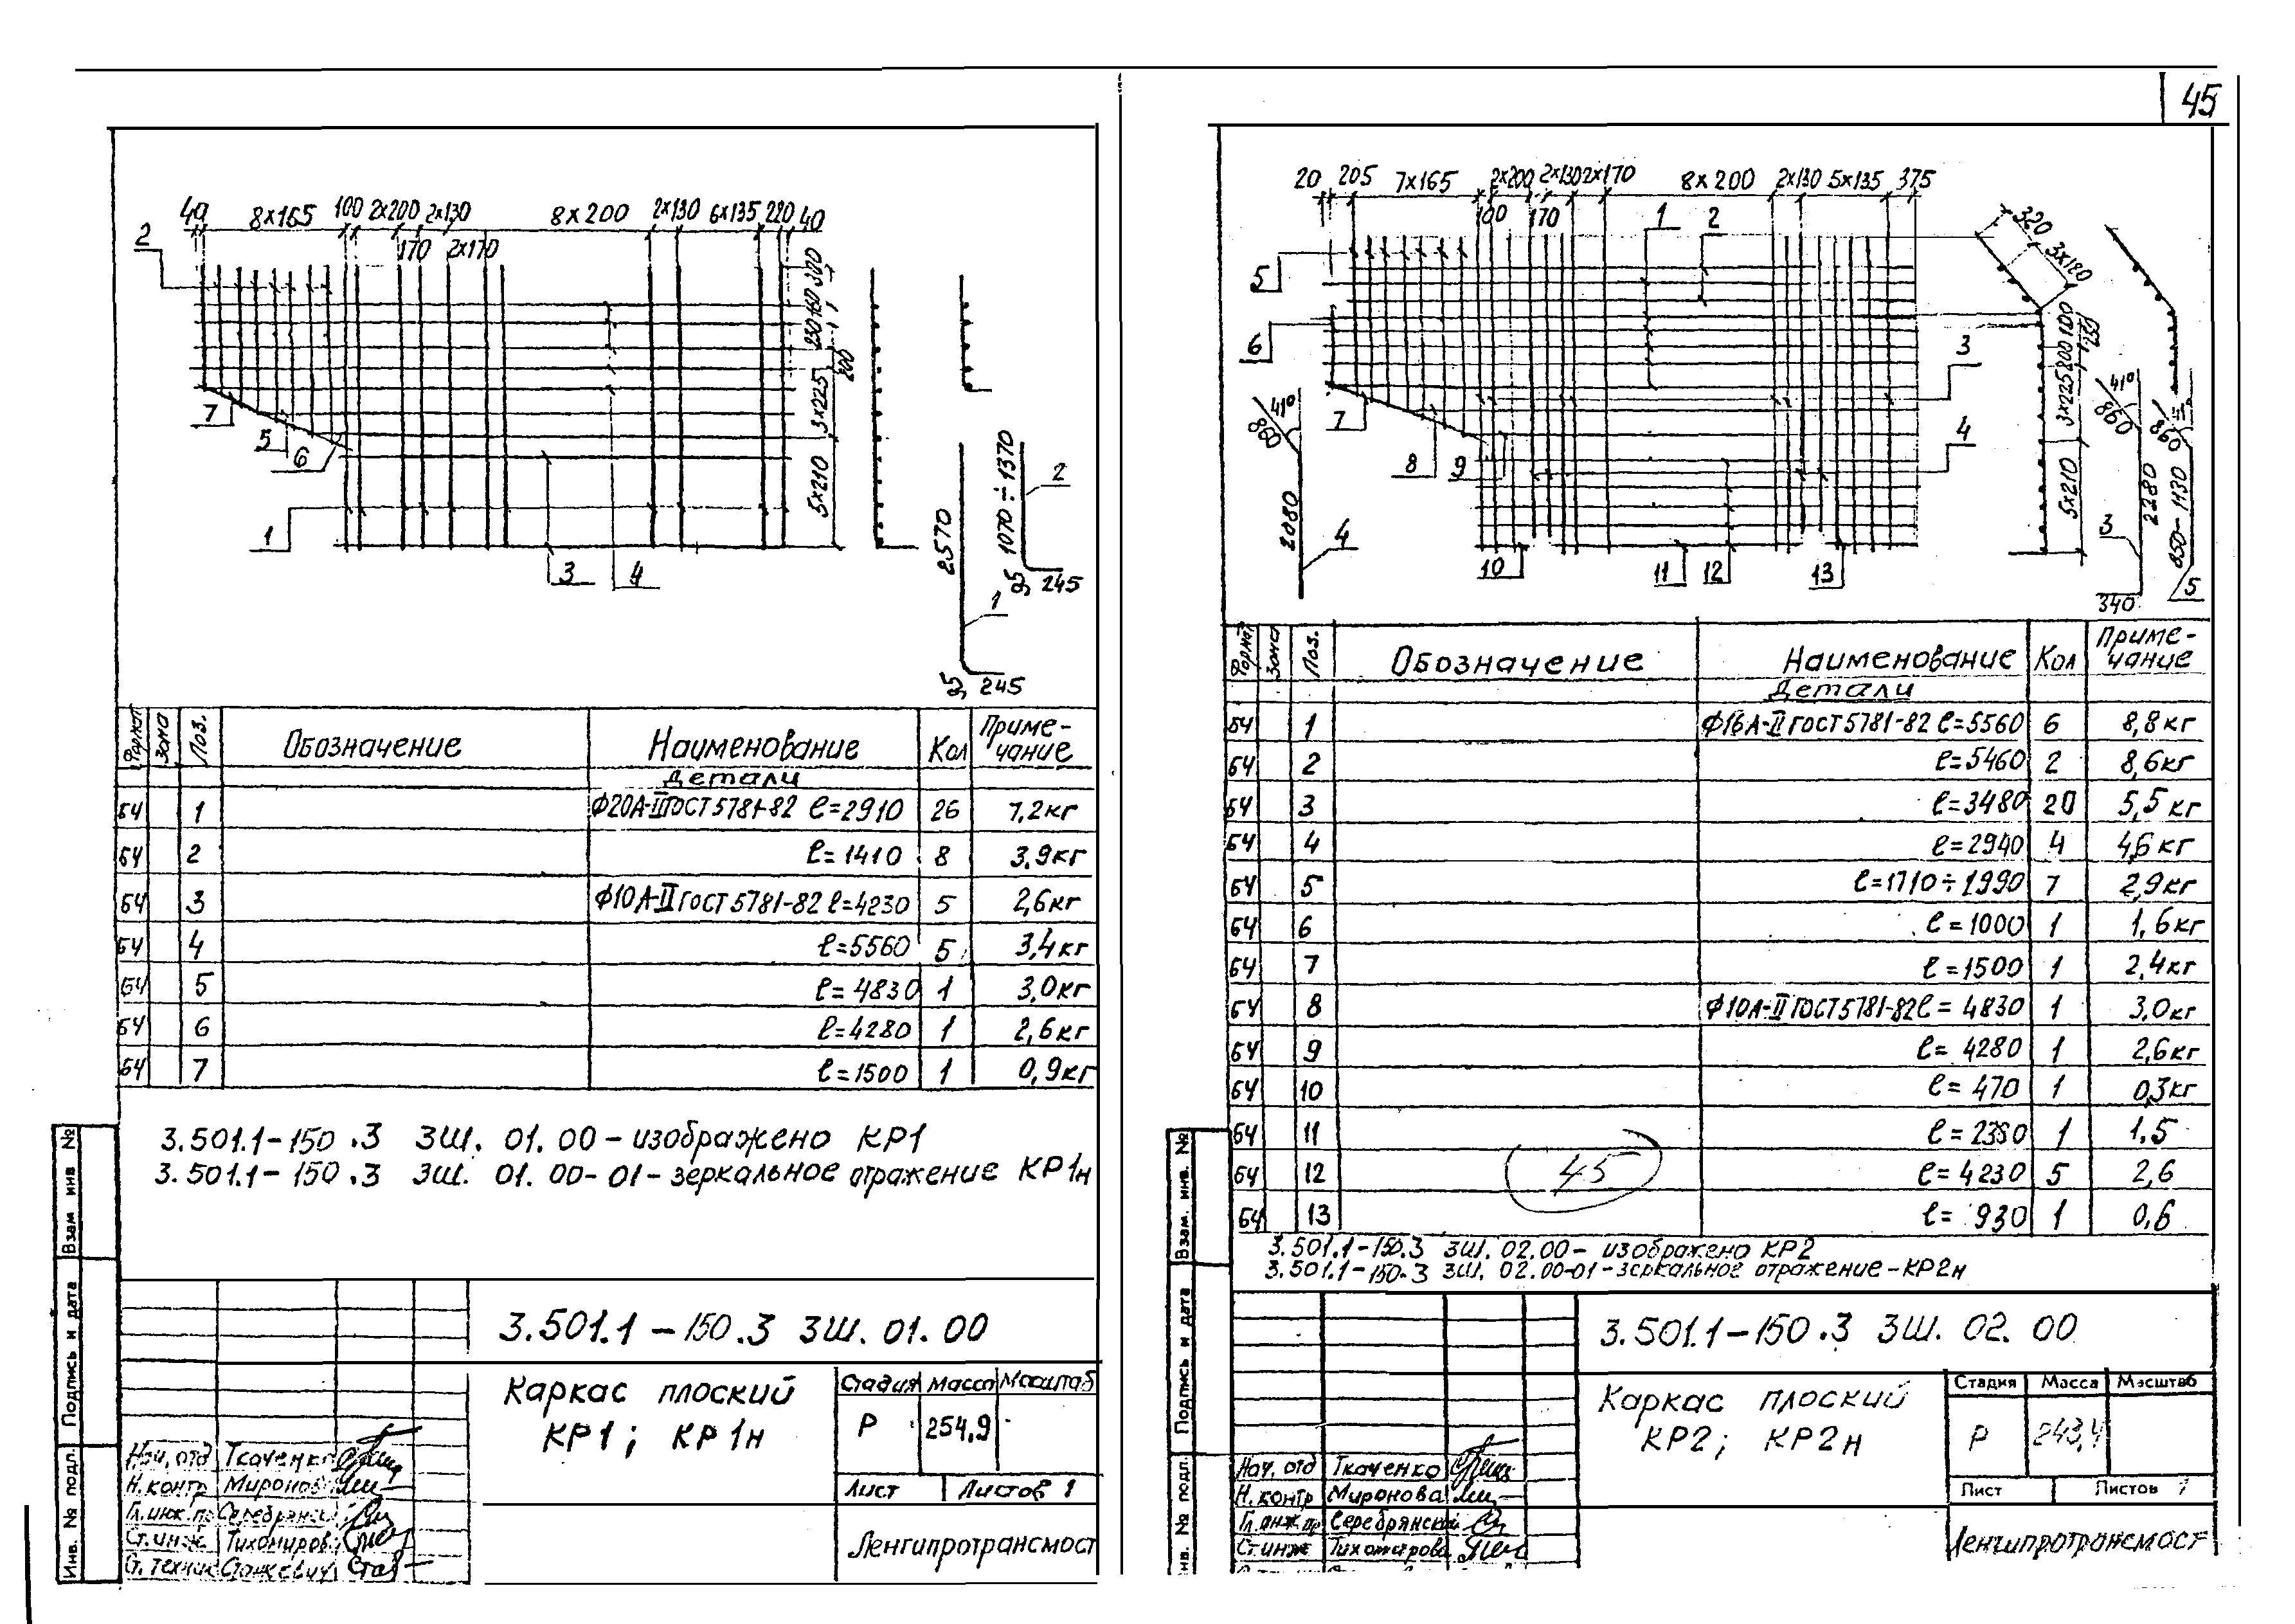 45
40 8×165 100 2×200 2×130 8×200 2×130 6×135 220 40
170 2×170
2
300
160
230
200
3×225
5×210
7
5
6
1
3
4
2570
1
R5 245
1070÷1370
2
R5 245
Формат Зона Поз. Обозначение Наименование Кол Приме-
чание
Детали
БЧ 1 Ф20А-II ГОСТ 5781-82 ℓ=2910 26 7,2кг
БЧ 2 ℓ=1410 8 3,9кг
БЧ 3 Ф10А-II ГОСТ 5781-82 ℓ=4230 5 2,6кг
БЧ 4 ℓ=5560 5 3,4кг
БЧ 5 ℓ=4830 1 3,0кг
БЧ 6 ℓ=4280 1 2,6кг
БЧ 7 ℓ=1500 1 0,9кг
3.501.1-150.3 3Ш. 01.00 - изображено КР1
3.501.1-150.3 3Ш. 01.00-01 - зеркальное отражение КР1н
Взам инв №
Подпись и дата
Инв. № подл.
3.501.1-150.3 3Ш. 01.00
Каркас плоский
КР1; КР1н
Стадия Масса Масштаб
Р 254,9
Лист Листов 1
Ленгипротрансмост
Нач. отд Ткаченко
Н. контр Миронова
Гл. инж. пр Серебрянск
Ст. инж. Тихомиров
Ст. техник Станкевич
20 205 7×165 2×200 2×130 2×170 8×200 2×130 5×135 375
100 170
1
2
5
6
7
8
9
10
11
12
13
3
4
320
3×180
100
200
3×225
5×210
41°
860
2080
4
41°
860
2280
3
340
860
850-1130
5
Формат Зона Поз. Обозначение Наименование Кол Приме-
чание
Детали
БЧ 1 Ф16А-II ГОСТ 5781-82 ℓ=5560 6 8,8кг
БЧ 2 ℓ=5460 2 8,6кг
БЧ 3 ℓ=3480 20 5,5кг
БЧ 4 ℓ=2940 4 4,6кг
БЧ 5 ℓ=1710÷1990 7 2,9кг
БЧ 6 ℓ=1000 1 1,6кг
БЧ 7 ℓ=1500 1 2,4кг
БЧ 8 Ф10А-II ГОСТ 5781-82 ℓ=4830 1 3,0кг
БЧ 9 ℓ=4280 1 2,6кг
БЧ 10 ℓ=470 1 0,3кг
БЧ 11 ℓ=2380 1 1,5
БЧ 12 ℓ=4230 5 2,6
БЧ 13 ℓ=930 1 0,6
45
3.501.1-150.3 3Ш. 02.00 - изображено КР2
3.501.1-150.3 3Ш. 02.00-01 - зеркальное отражение - КР2н
Взам. инв. №
Подпись и дата
Инв. № подл.
3.501.1-150.3 3Ш. 02.00
Каркас плоский
КР2; КР2н
Стадия Масса Масштаб
Р 243,4
Лист Листов 1
Ленгипротрансмост
Нач. отд Ткаченко
Н. контр Миронова
Гл. инж. пр Серебрянский
Ст. инж Тихомирова